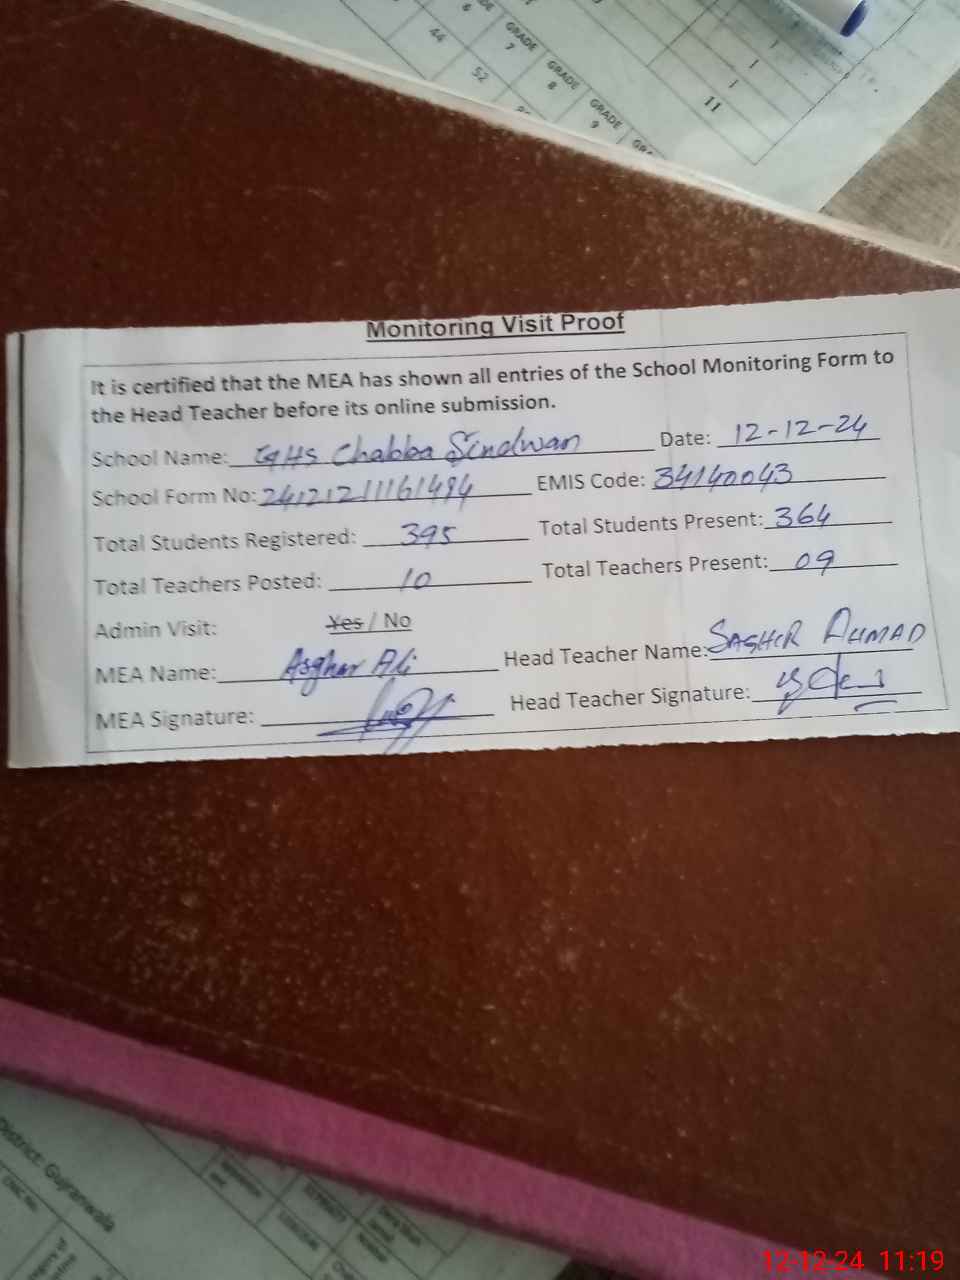 GRADE
6
GRADE
7
GRADE
8
GRADE
9
44
52
11
Monitoring Visit Proof
It is certified that the MEA has shown all entries of the School Monitoring Form to
the Head Teacher before its online submission.
School Name: GHS Chabba Sindwan Date: 12-12-24
School Form No: EMIS Code: 34140043
Total Students Registered: 395 Total Students Present: 364
Total Teachers Posted: 10 Total Teachers Present: 09
Admin Visit: Yes / No
MEA Name: Asghar Ali Head Teacher Name: SAGHIR AHMAD
MEA Signature: Head Teacher Signature:
District: Gujranwala
12-12-24 11:19